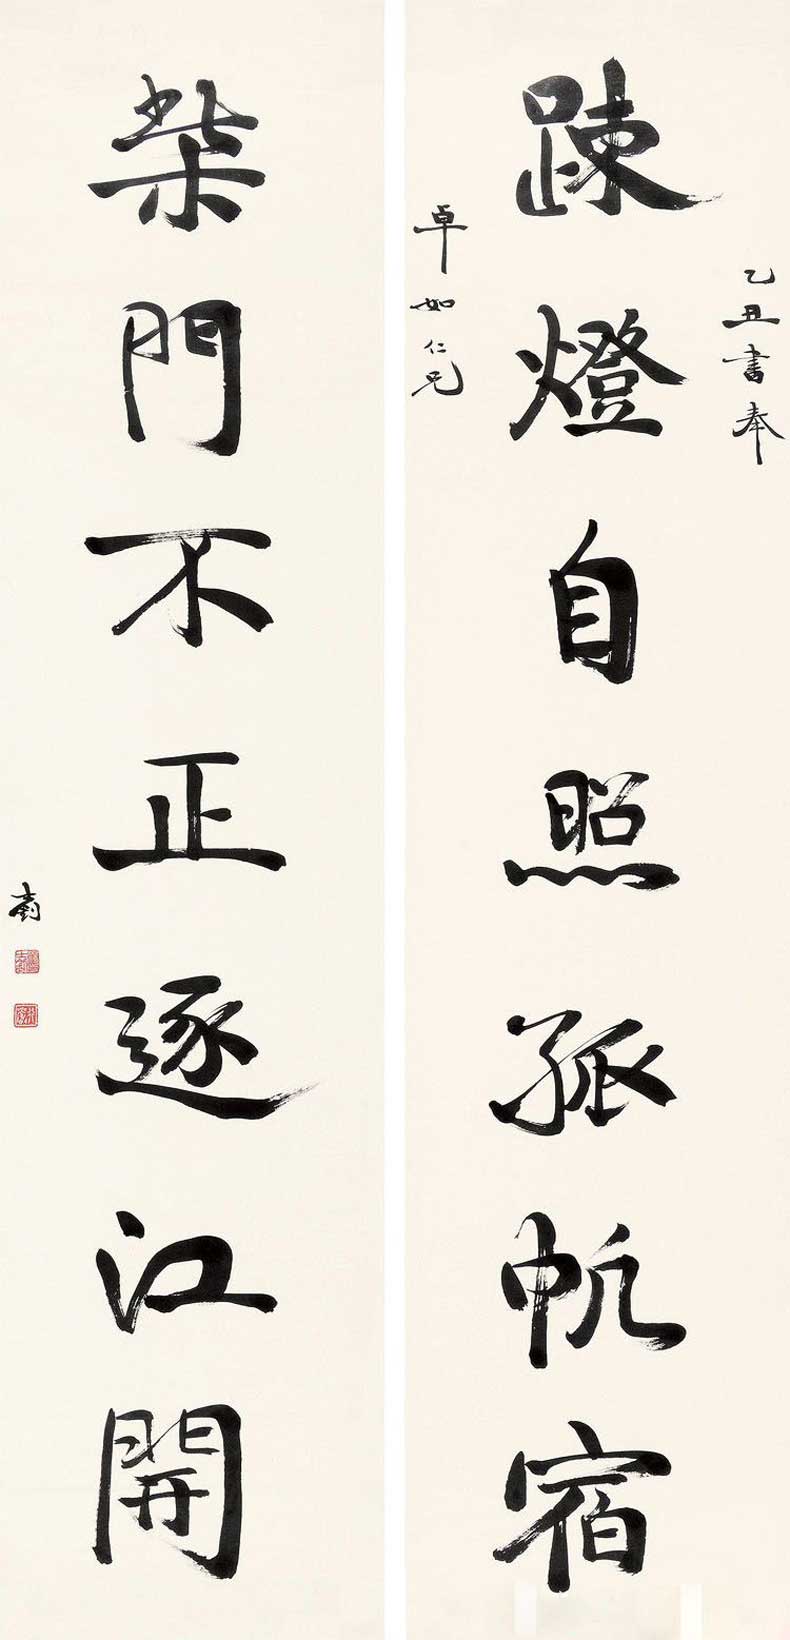 乙丑書奉
踈燈自照孤帆宿
卓如仁兄
柴門不正逐江開